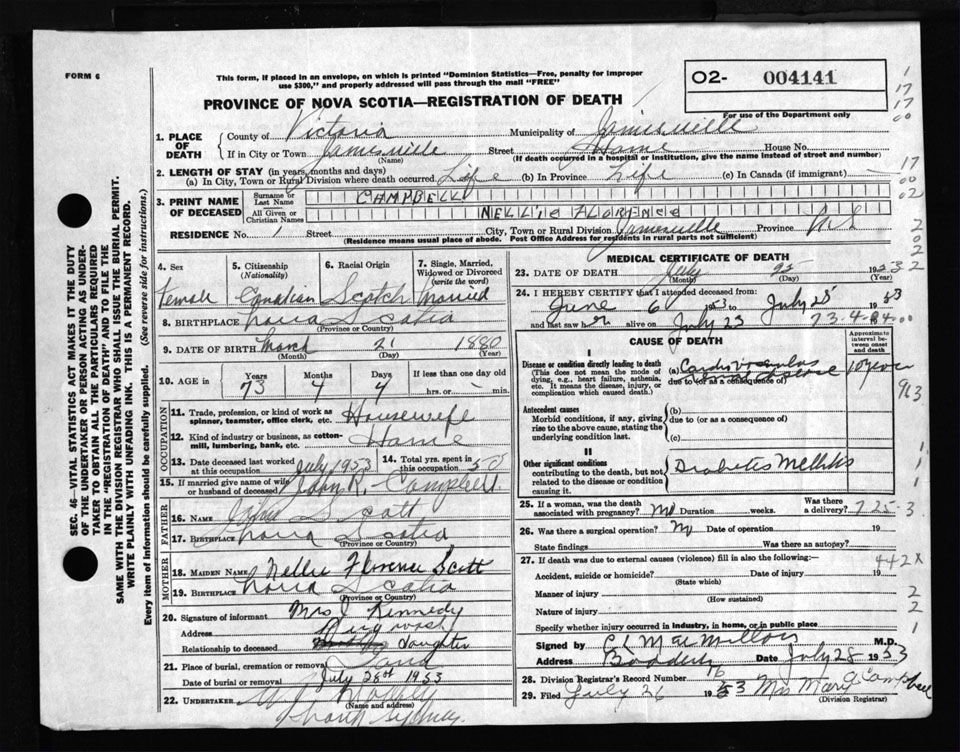 FORM 6
This form, if placed in an envelope, on which is printed "Dominion Statistics—Free, penalty for improper
use $300," and properly addressed will pass through the mail "FREE"
O2- 004141
For use of the Department only
PROVINCE OF NOVA SCOTIA—REGISTRATION OF DEATH
1. PLACE OF DEATH
County of Victoria Municipality of Jamesville
If in City or Town Jamesville Street Home House No.
(Name) (If death occurred in a hospital or institution, give the name instead of street and number)
2. LENGTH OF STAY (in years, months and days)
(a) In City, Town or Rural Division where death occurred Life (b) In Province Life (c) In Canada (if immigrant) —
3. PRINT NAME OF DECEASED
Surname or Last Name CAMPBELL
All Given or Christian Names NELLIE FLORENCE
RESIDENCE No. 1 Street City, Town or Rural Division Jamesville Province N S
(Residence means usual place of abode. Post Office Address for residents in rural parts not sufficient)
4. Sex Female
5. Citizenship (Nationality) Canadian
6. Racial Origin Scotch
7. Single, Married, Widowed or Divorced (write the word) Married
8. BIRTHPLACE Nova Scotia
(Province or Country)
9. DATE OF BIRTH March 21 1880
(Month) (Day) (Year)
10. AGE in Years 73 Months 4 Days 4 If less than one day
hrs. or — min.
OCCUPATION
11. Trade, profession, or kind of work as spinner, teamster, office clerk, etc. Housewife
12. Kind of industry or business, as cotton-mill, lumbering, bank, etc. Home
13. Date deceased last worked at this occupation July 1953
14. Total yrs. spent in this occupation 50
15. If married give name of wife or husband of deceased John R. Campbell
FATHER
16. NAME John Scott
17. BIRTHPLACE Nova Scotia
(Province or Country)
MOTHER
18. MAIDEN NAME Nellie Florence Scott
19. BIRTHPLACE Nova Scotia
(Province or Country)
20. Signature of informant Mrs J Kennedy
Address Pugwash
Relationship to deceased daughter
21. Place of burial, cremation or removal
Date of burial or removal July 28st 1953
22. UNDERTAKER
(Name and address)
North Sydney
MEDICAL CERTIFICATE OF DEATH
23. DATE OF DEATH July 25
(Month) (Day) (Year)
24. I HEREBY CERTIFY that I attended deceased from:
June 6 1953 to July 25 1953
and last saw her alive on July 25
CAUSE OF DEATH
Approximate interval between onset and death
I
Disease or condition directly leading to death
(This does not mean the mode of dying, e.g., heart failure, asthenia, etc. It means the disease, injury, or complication which caused death.)
(a) Cardiovascular
due to (or as a consequence of)
Antecedent causes
Morbid conditions, if any, giving rise to the above cause, stating the underlying condition last.
(b)
due to (or as a consequence of)
(c)
II
Other significant conditions
contributing to the death, but not related to the disease or condition causing it.
Diabetes Mellitis
25. If a woman, was the death associated with pregnancy? No Duration weeks. Was there a delivery?
26. Was there a surgical operation? No Date of operation 19
State findings Was there an autopsy?
27. If death was due to external causes (violence) fill in also the following:—
Accident, suicide or homicide? Date of injury 19
(State which)
Manner of injury
(How sustained)
Nature of injury
Specify whether injury occurred in industry, in home, or in public place
Signed by C L MacMillan M.D.
Address Baddeck Date July 28 1953
28. Division Registrar's Record Number 16
29. Filed July 26 1953 Mrs Mary G Campbell
(Division Registrar)
SEC. 46—VITAL STATISTICS ACT MAKES IT THE DUTY
OF THE UNDERTAKER OR PERSON ACTING AS UNDER-
TAKER TO OBTAIN ALL THE PARTICULARS REQUIRED
IN THE "REGISTRATION OF DEATH" AND TO FILE THE
SAME WITH THE DIVISION REGISTRAR WHO SHALL ISSUE THE BURIAL PERMIT.
WRITE PLAINLY WITH UNFADING INK. THIS IS A PERMANENT RECORD.
Every item of Information should be carefully supplied. (See reverse side for instructions.)
1
17
17
00
17
00
02
2
0
2
232
73-4-04-00
913
1
1
1
725-3
442X
2
2
1